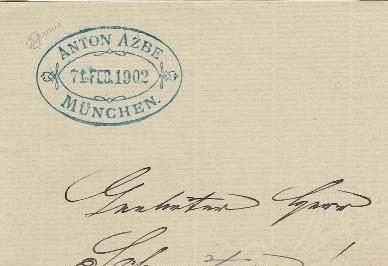 ANTON AŽBE
7. FEB. 1902
MÜNCHEN.
Geehrter Herr